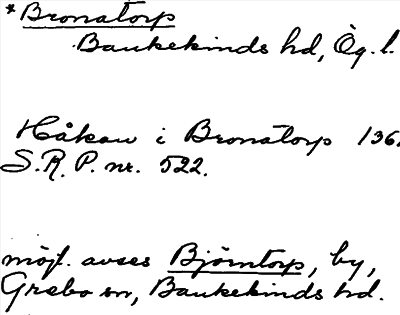 *Bronatorp
Bankekinds hd, Ög. l.
Håkan i Bronatorp 136
S.R.P. nr. 522.
möjl. avses Björntorp, by,
Grebo sn, Bankekinds hd.